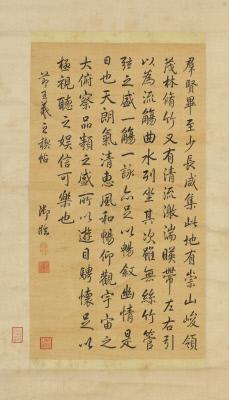 群賢畢至少長咸集此地有崇山峻領
茂林脩竹又有清流激湍暎帶左右引
以為流觴曲水列坐其次雖無絲竹管
弦之盛一觴一詠亦足以暢叙幽情是
日也天朗氣清惠風和暢仰觀宇宙之
大俯察品類之盛所以遊目騁懷足以
極視聽之娛信可樂也
節王羲之稧帖
御臨